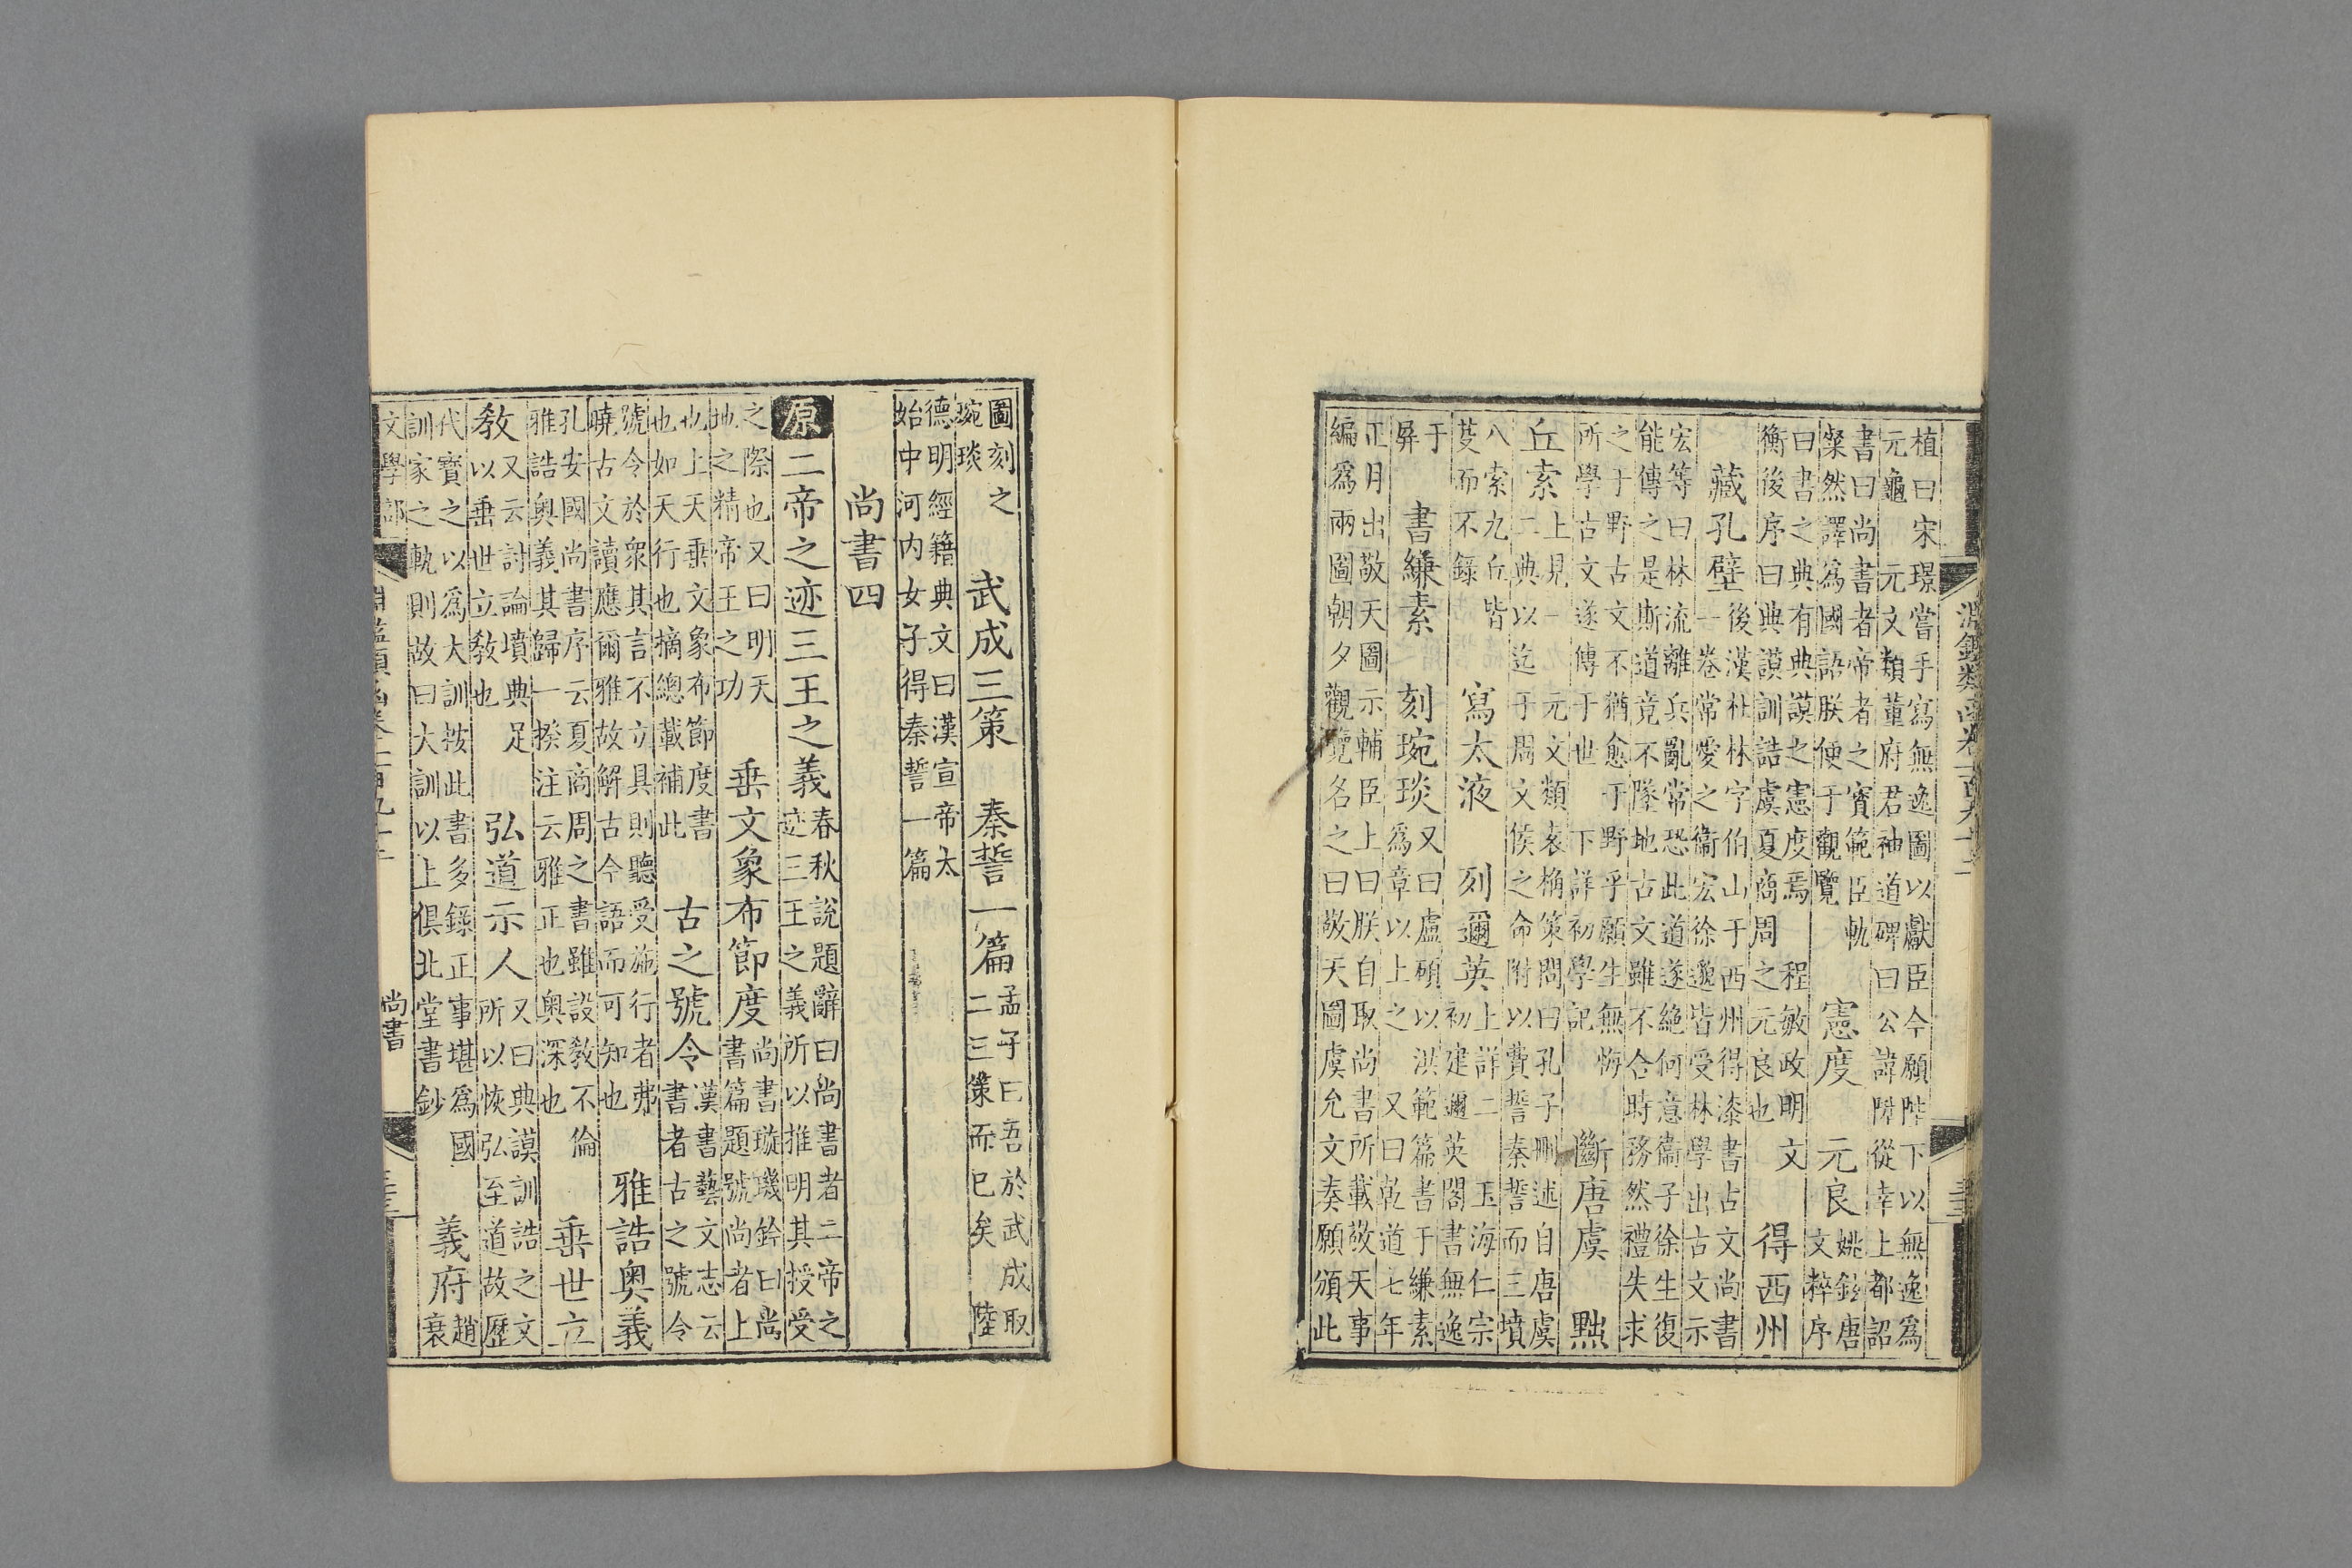 淵鑑類函卷
植曰宋璟嘗手寫無逸圖以獻臣今願陛下以無逸爲
元龜 元文類董府君神道碑曰公諱隣從幸上都詔
書曰尚書者帝者之寳範臣軌
粲然譯爲國語朕便于觀覽
憲度 元良
姚鉉唐
文粹序
曰書之典有典謨之憲度焉 程敏政明文
衡後序曰典謨訓誥虞夏商周之元良也
得西州
藏孔壁
後漢杜林字伯山于西州得漆書古文尚書
一卷常愛之衞宏徐邈皆受林學出古文示
宏等曰林流離兵亂常恐此道遂絕何意衞子徐生復
能傳之是斯道竟不墜地古文雖不合時務然禮失求
之于野古文不猶愈于野乎願生無悔
所學古文遂傳于世 下詳初學記
斷唐虞 黜
丘索
上見一 元文類袁桷策問曰孔子刪述自唐虞
二典以迄于周文侯之命附以費誓秦誓而三墳
八索九丘皆
芟而不錄
寫太液 列邇英
上詳二 玉海仁宗
初建邇英閣書無逸
于
屏
書縑素 刻琬琰
又曰盧碩以洪範篇書于縑素
爲章以上之 又曰乾道七年
正月出敬天圖示輔臣上曰朕自取尚書所載敬天事
編爲兩圖朝夕觀覽名之曰敬天圖虞允文奏願頒此
圖刻之
琬琰
武成三策 秦誓一篇
孟子曰吾於武成取
二三策而已矣 陸
德明經籍典文曰漢宣帝太
始中河内女子得秦誓一篇
尚書四
原
二帝之迹三王之義
春秋說題辭曰尚書者二帝之
迹三王之義所以推明其授受
之際也又曰明天
地之精帝王之功
垂文象布節度
尚書璇璣鈐曰尚
書篇題號尚者上
也上天垂文象布節度書
也如天天行也摘總載補此
古之號令
漢書藝文志云
書者古之號令
號令於衆其言不立具則聽受施行者弗
曉古文讀應爾雅故解古今語而可知也
雅誥奥義
孔安國尚書序云夏商周之書雖設敎不倫
雅誥奥義其歸一揆注云雅正也奥深也
垂世立
敎
又云討論墳典足
以垂世立敎也
弘道示人
又曰典謨訓誥之文
所以恢弘至道故歷
代寶之以爲大訓按此書多錄正事堪爲國
訓家之軌則故曰大訓以上俱北堂書鈔
義府
趙
衰
文學部
尚書